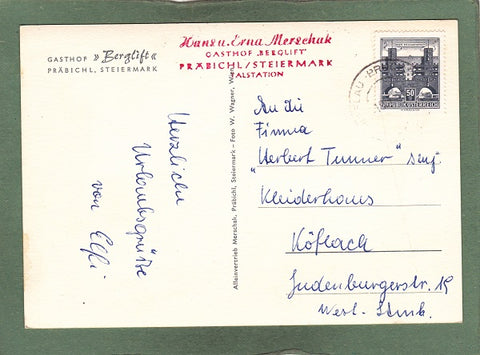 GASTHOF »Berglift«
PRÄBICHL, STEIERMARK
Hans u. Erna Merschak
GASTHOF „BERGLIFT"
PRÄBICHL/STEIERMARK
TALSTATION
50
Herzliche
Urlaubsgrüße
von Elfi
Alleinvertrieb Merschak, Präbichl, Steiermark - Foto W. Wagner, Wien
An die
Firma
„Herbert Tunner"
Kleiderhaus
Köflach
Judenburgerstr. 19
West-Stmk.